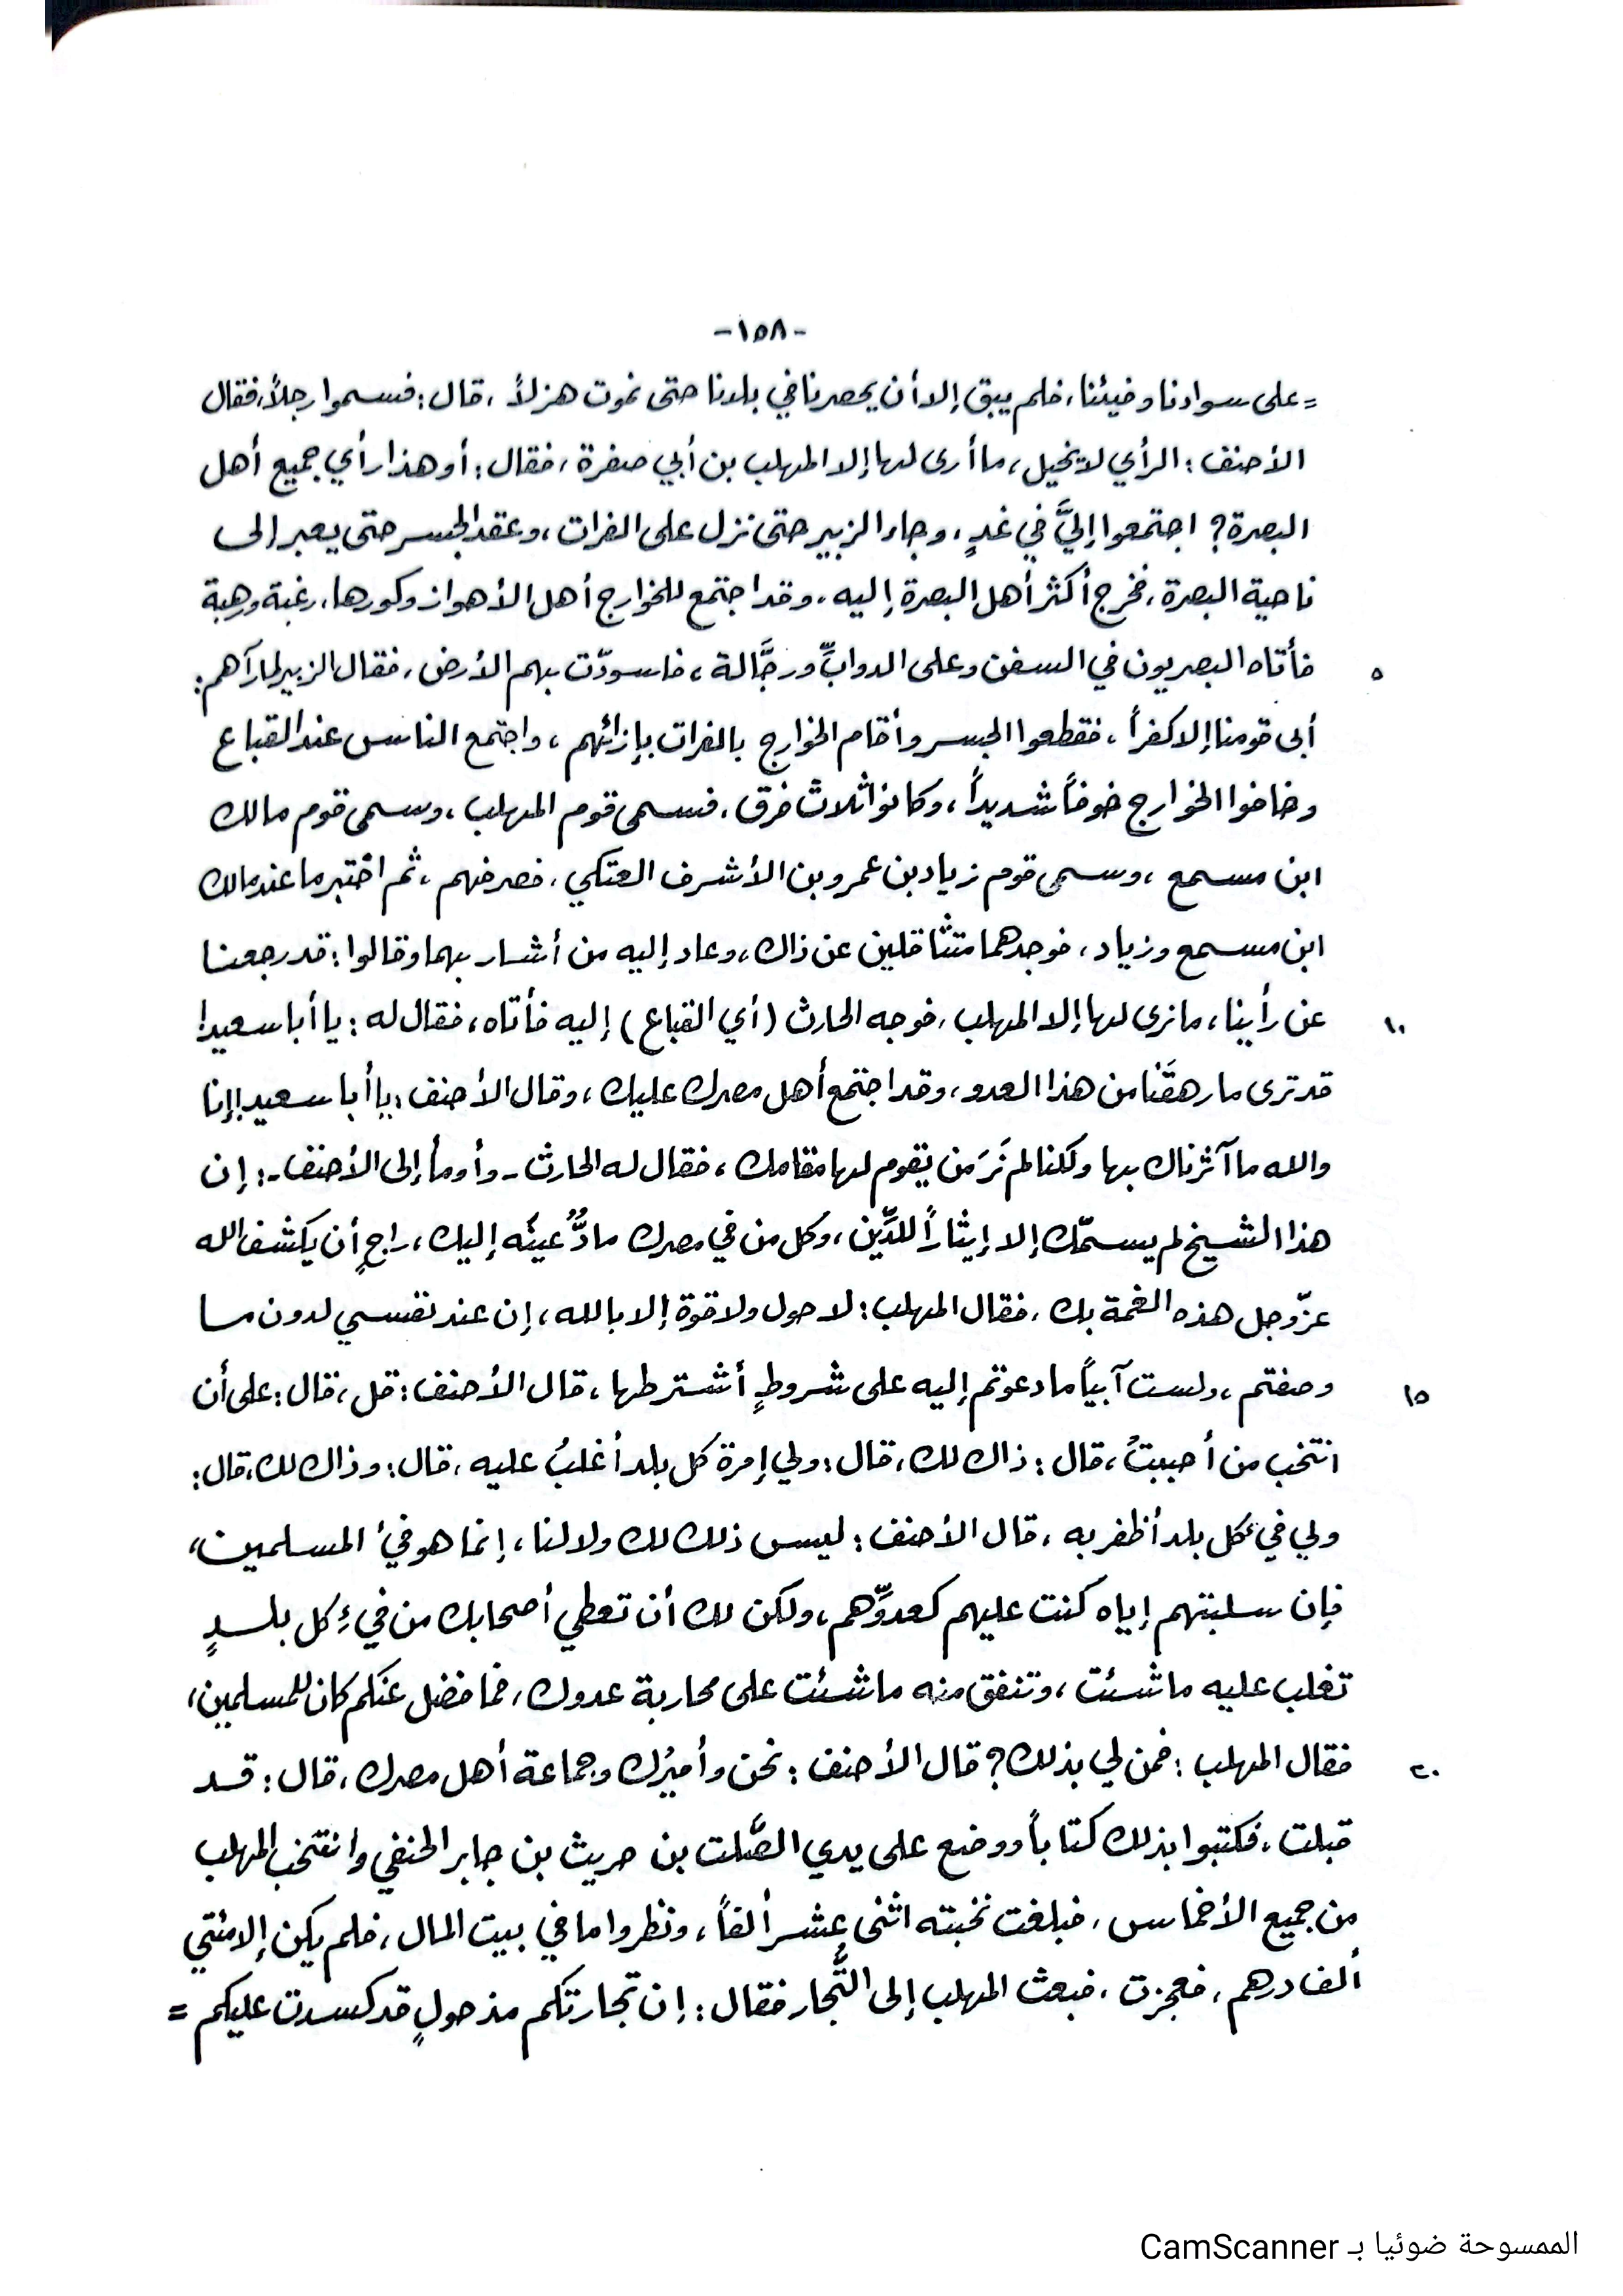 -١٥٨-
= على سوادنا وفيئنا، فلم يبق إلا أن يحصرنا في بلدنا حتى نموت هزلاً، قال: فسموا رجلاً، فقال
الأحنف: الرأي لا يخيل، ما أرى لها إلا المهلب بن أبي صفرة، فقال: أو هذا رأي جميع أهل
البصرة؟ اجتمعوا إليَّ في غدٍ، وجاء الزبير حتى نزل على الفرات، وعقد الجسر حتى يعبر إلى
ناحية البصرة، فخرج أكثر أهل البصرة إليه، وقد اجتمع للخوارج أهل الأهواز وكورها، رغبة ورهبة
٥ فأتاه البصريون في السفن وعلى الدوابِّ ورجَّالة، فاسودّت بهم الأرض، فقال الزبير لما رآهم:
أبى قومنا إلا كفراً، فقطعوا الجسر وأقام الخوارج بالفرات بإزائهم، واجتمع الناس عند القباع
وخافوا الخوارج خوفاً شديداً، وكانوا ثلاث فرق، فسمى قوم المهلب، وسمى قوم مالك
ابن مسمع، وسمى قوم زياد بن عمرو بن الأشرف العتكي، فصرفهم، ثم اختبر ما عند مالك
ابن مسمع وزياد، فوجدهما متثاقلين عن ذاك، وعاد إليه من أشار بهما وقالوا: قد رجعنا
١٠ عن رأينا، ما نرى لها إلا المهلب، فوجه الحارث (أي القباع) إليه فأتاه، فقال له: يا أبا سعيد!
قد ترى ما رهقَنا من هذا العدو، وقد اجتمع أهل مصرك عليك، وقال الأحنف: يا أبا سعيد! إنا
والله ما آثرناك بها ولكنا لم نَرَ من يقوم لها مقامك، فقال له الحارث - وأومأ إلى الأحنف -: إن
هذا الشيخ لم يسمّك إلا إيثاراً للدِّين، وكل من في مصرك مادٌّ عينَه إليك، راجٍ أن يكشف الله
عزّ وجل هذه الغمة بك، فقال المهلب: لا حول ولا قوة إلا بالله، إن عند نفسي لدون ما
١٥ وصفتم، ولست آبياً ما دعوتم إليه على شروطٍ أشترطها، قال الأحنف: قل، قال: على أن
انتخب من أحببتُ، قال: ذاك لك، قال: ولي إمرة كل بلد أغلبُ عليه، قال: وذاك لك، قال:
ولي فيء كل بلد أظفر به، قال الأحنف: ليس ذلك لك ولا لنا، إنما هو فيء المسلمين،
فإن سلبتهم إياه كنت عليهم كعدوِّهم، ولكن لك أن تعطي أصحابك من فيءِ كل بلدٍ
تغلب عليه ما شئت، وتنفق منه ما شئت على محاربة عدوك، فما فضل عنكم كان للمسلمين،
٢٠ فقال المهلب: فمن لي بذلك؟ قال الأحنف: نحن وأميرُك وجماعة أهل مصرك، قال: قد
قبلت، فكتبوا بذلك كتاباً ووضع على يدي الصَّلت بن حريث بن جابر الحنفي وانتخب المهلب
من جميع الأخماس، فبلغت نخبته اثنى عشر ألفاً، ونظروا ما في بيت المال، فلم يكن إلا مئتي
ألف درهم، فعجزت، فبعث المهلب إلى التُّجار فقال: إن تجارتكم مذ حولٍ قد كسدت عليكم =
الممسوحة ضوئيا بـ CamScanner